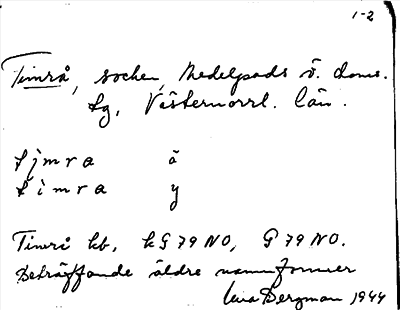 1-2
Timrå, socken, Medelpads v. doms.
lg, Västernorrl. län.
tjmra ä
timra y
Timrå kb, kG 79 NO, G 79 NO.
Beträffande äldre namnformer
Bergman 1944